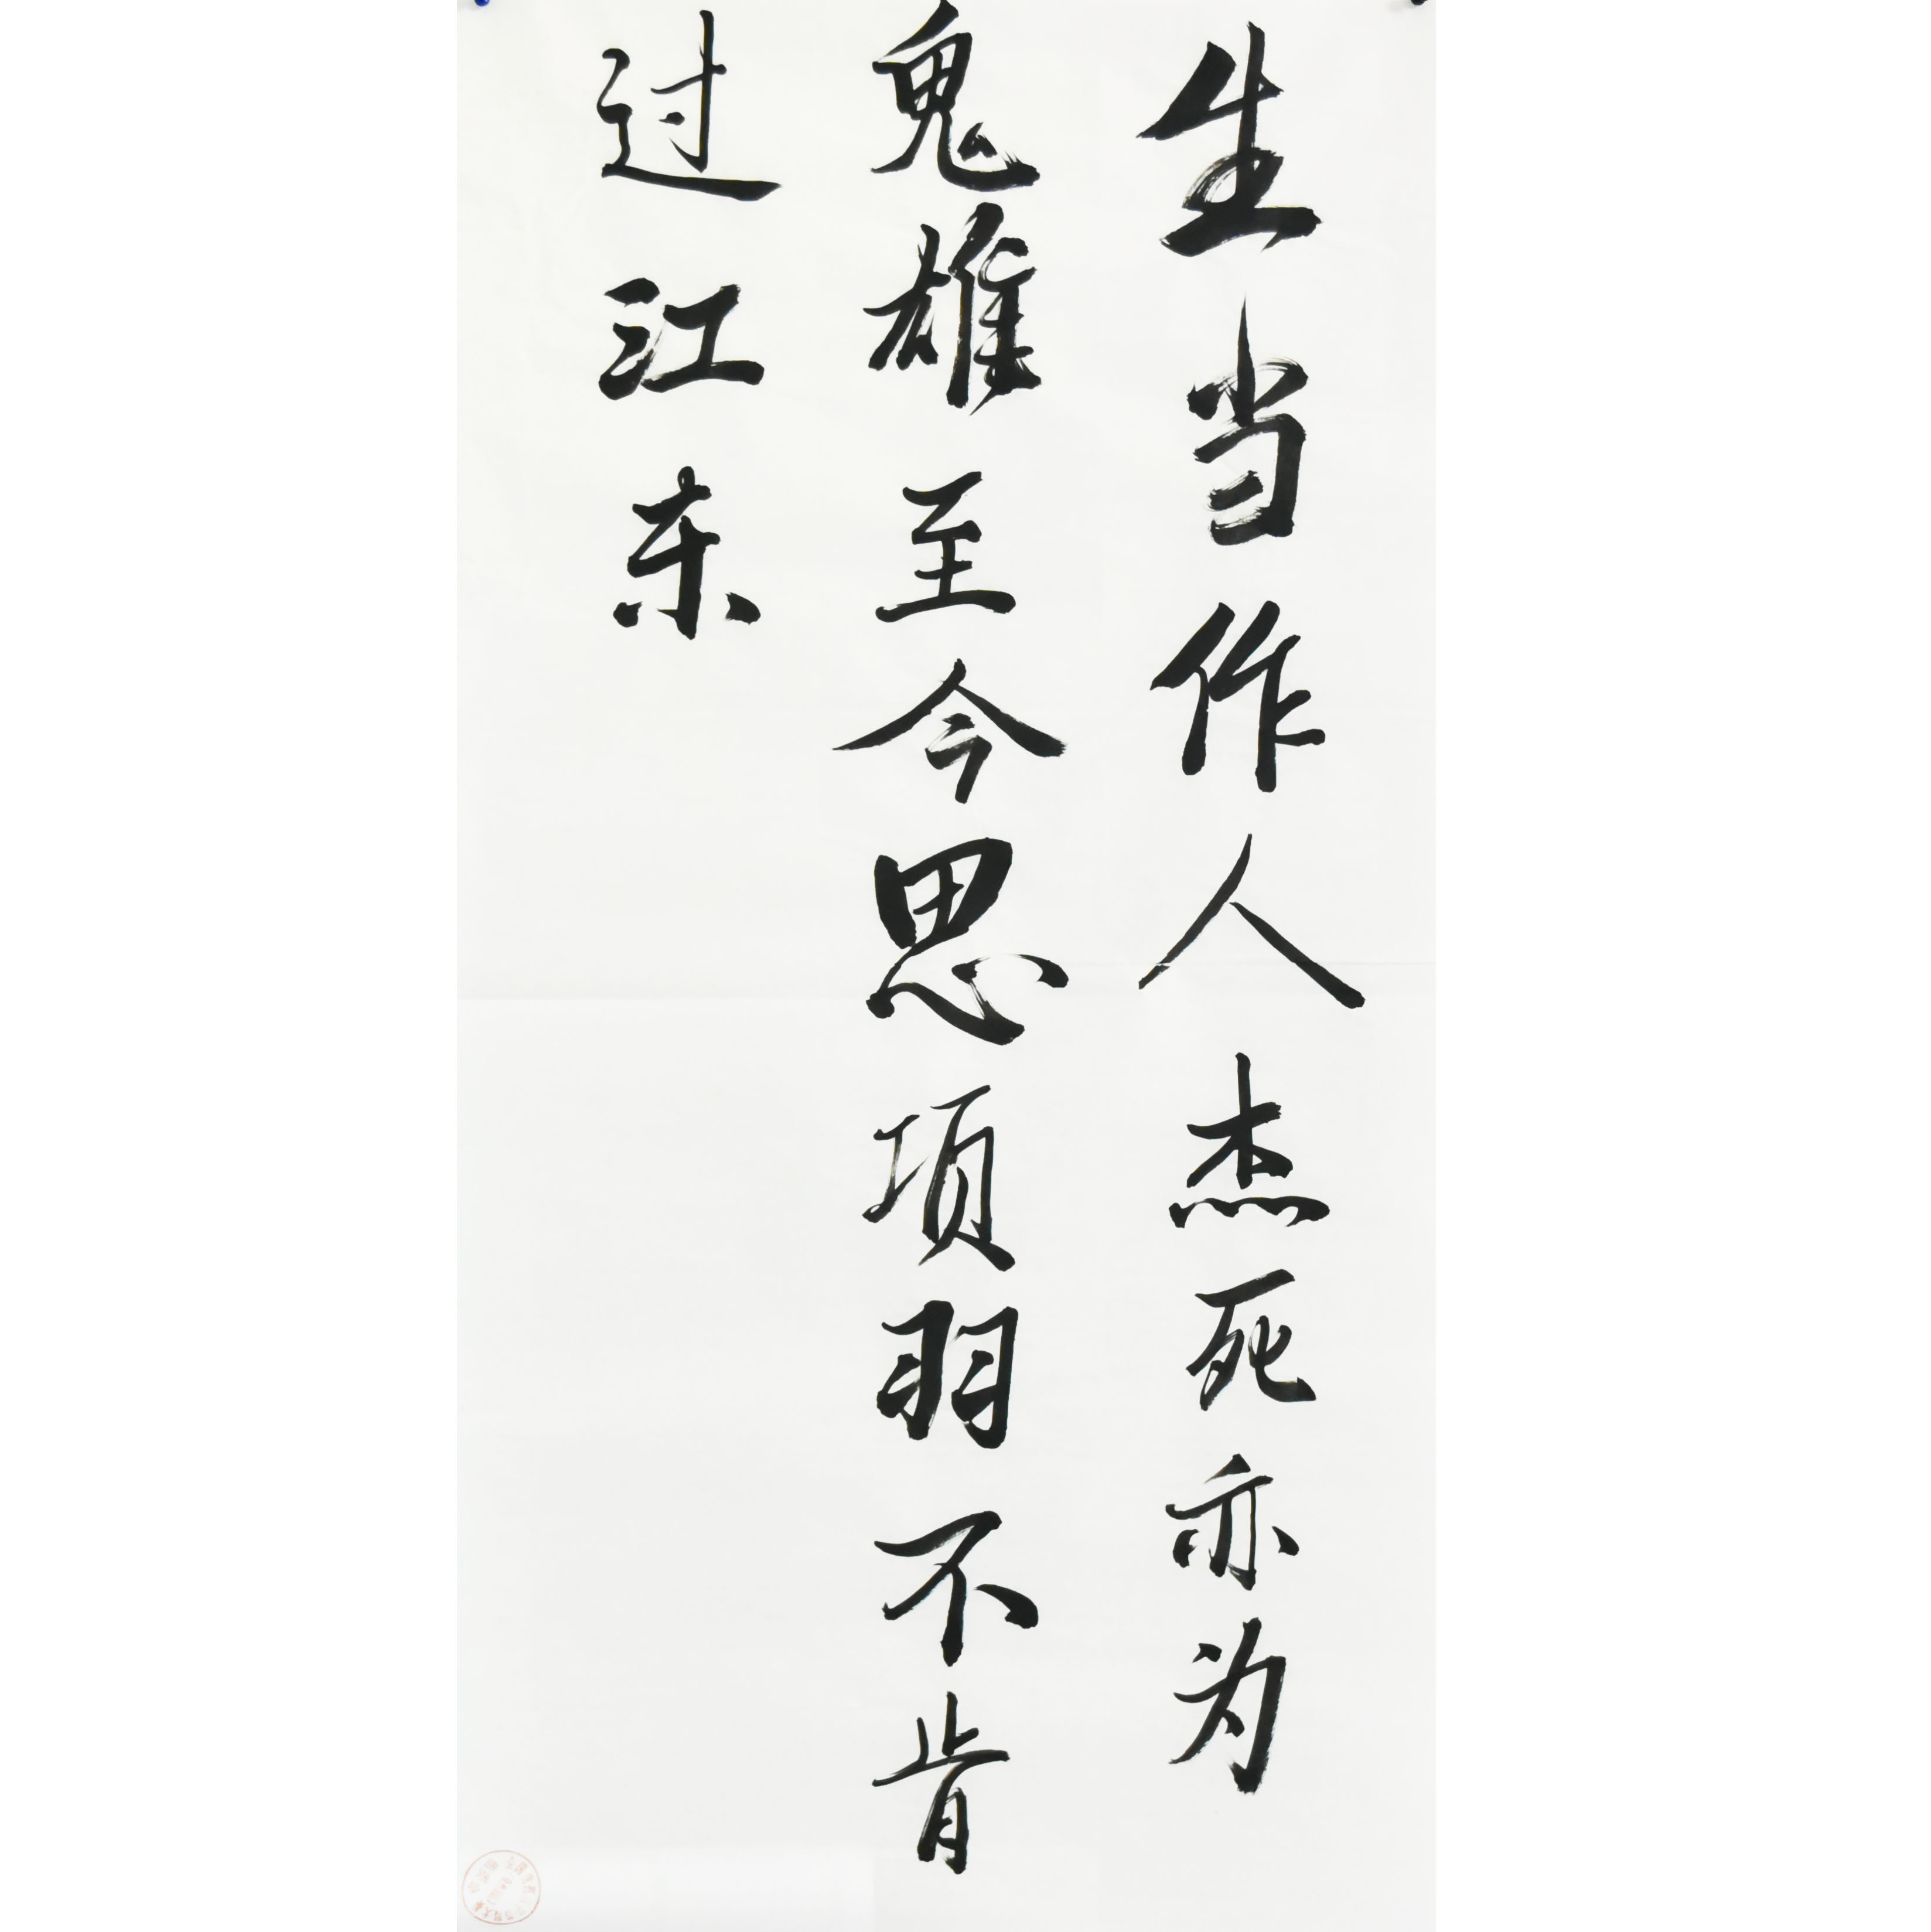 生当作人杰死亦为
鬼雄至今思项羽不肯
过江东